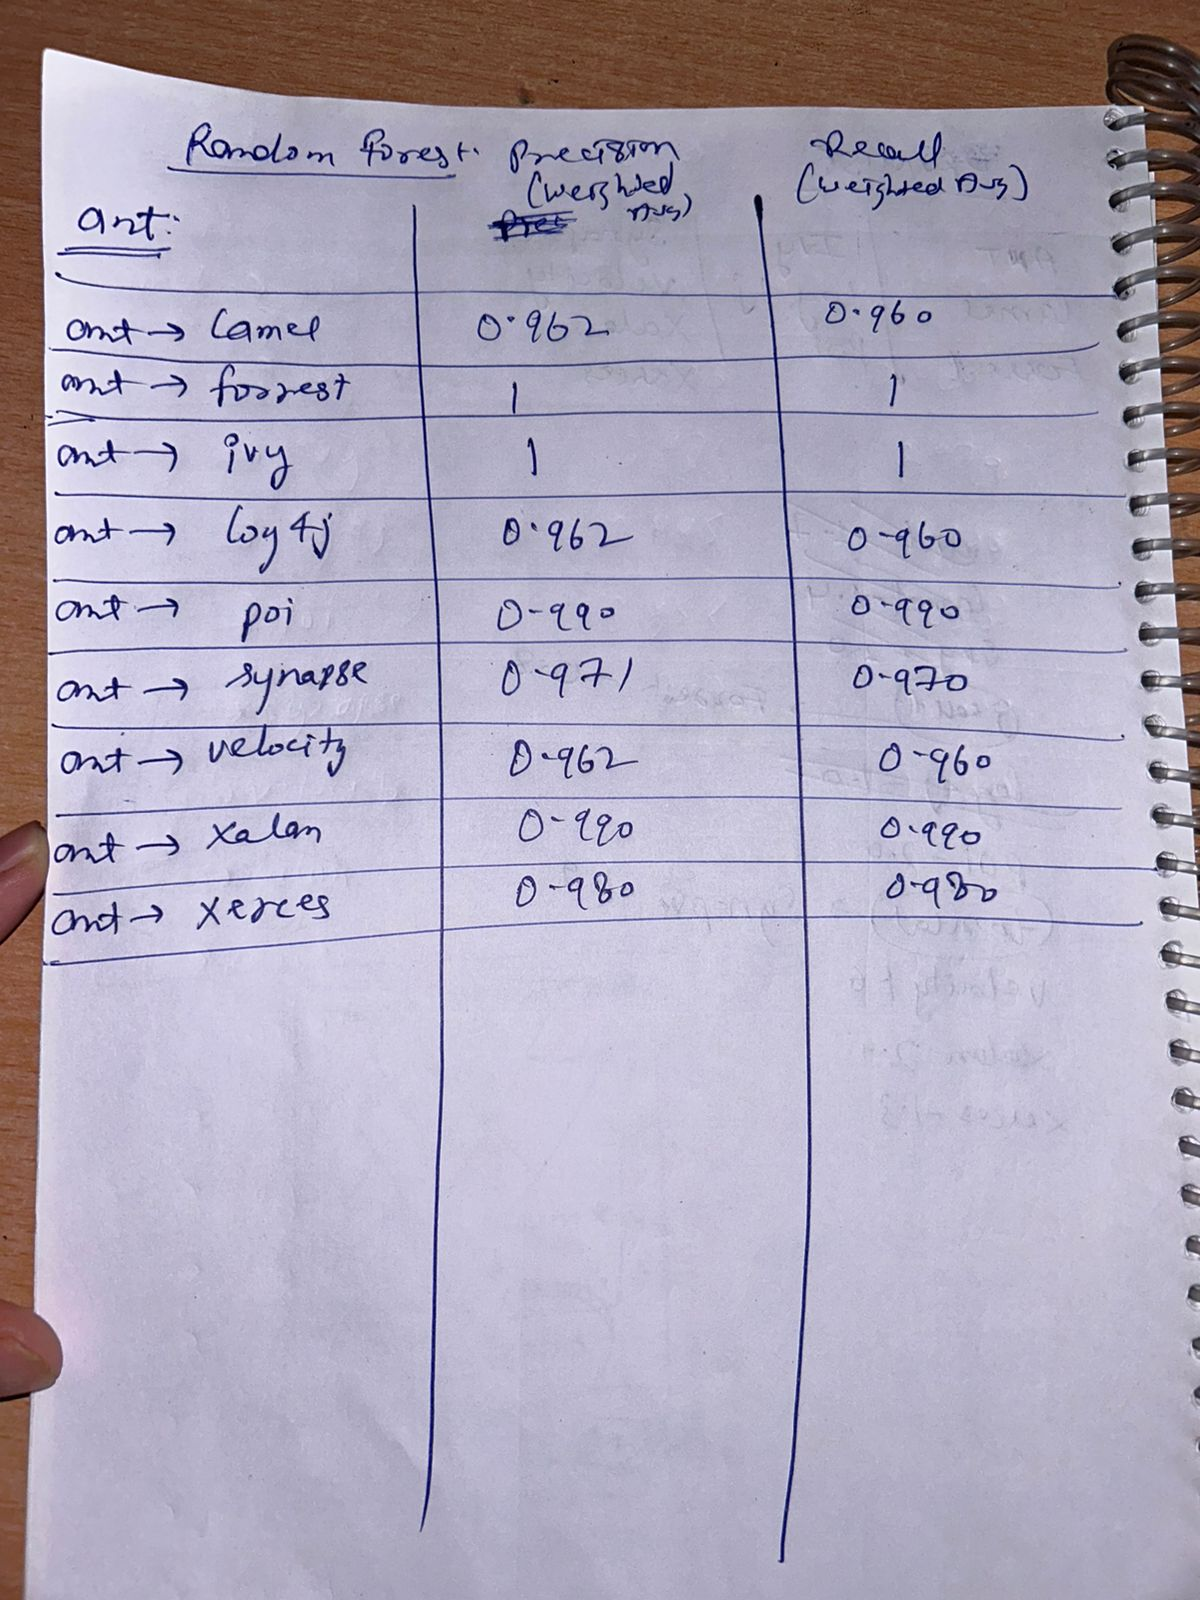 Random Forest. Precision (Weighted Avg) Recall (Weighted Avg)
ant:
ant → Camel 0.962 0.960
ant → forrest 1 1
ant → ivy 1 1
ant → log4j 0.962 0-960
ant → poi 0-990 0-990
ant → synapse 0-971 0-970
ant → velocity 0-962 0-960
ant → xalan 0-990 0-990
ant → xerces 0-980 0-980